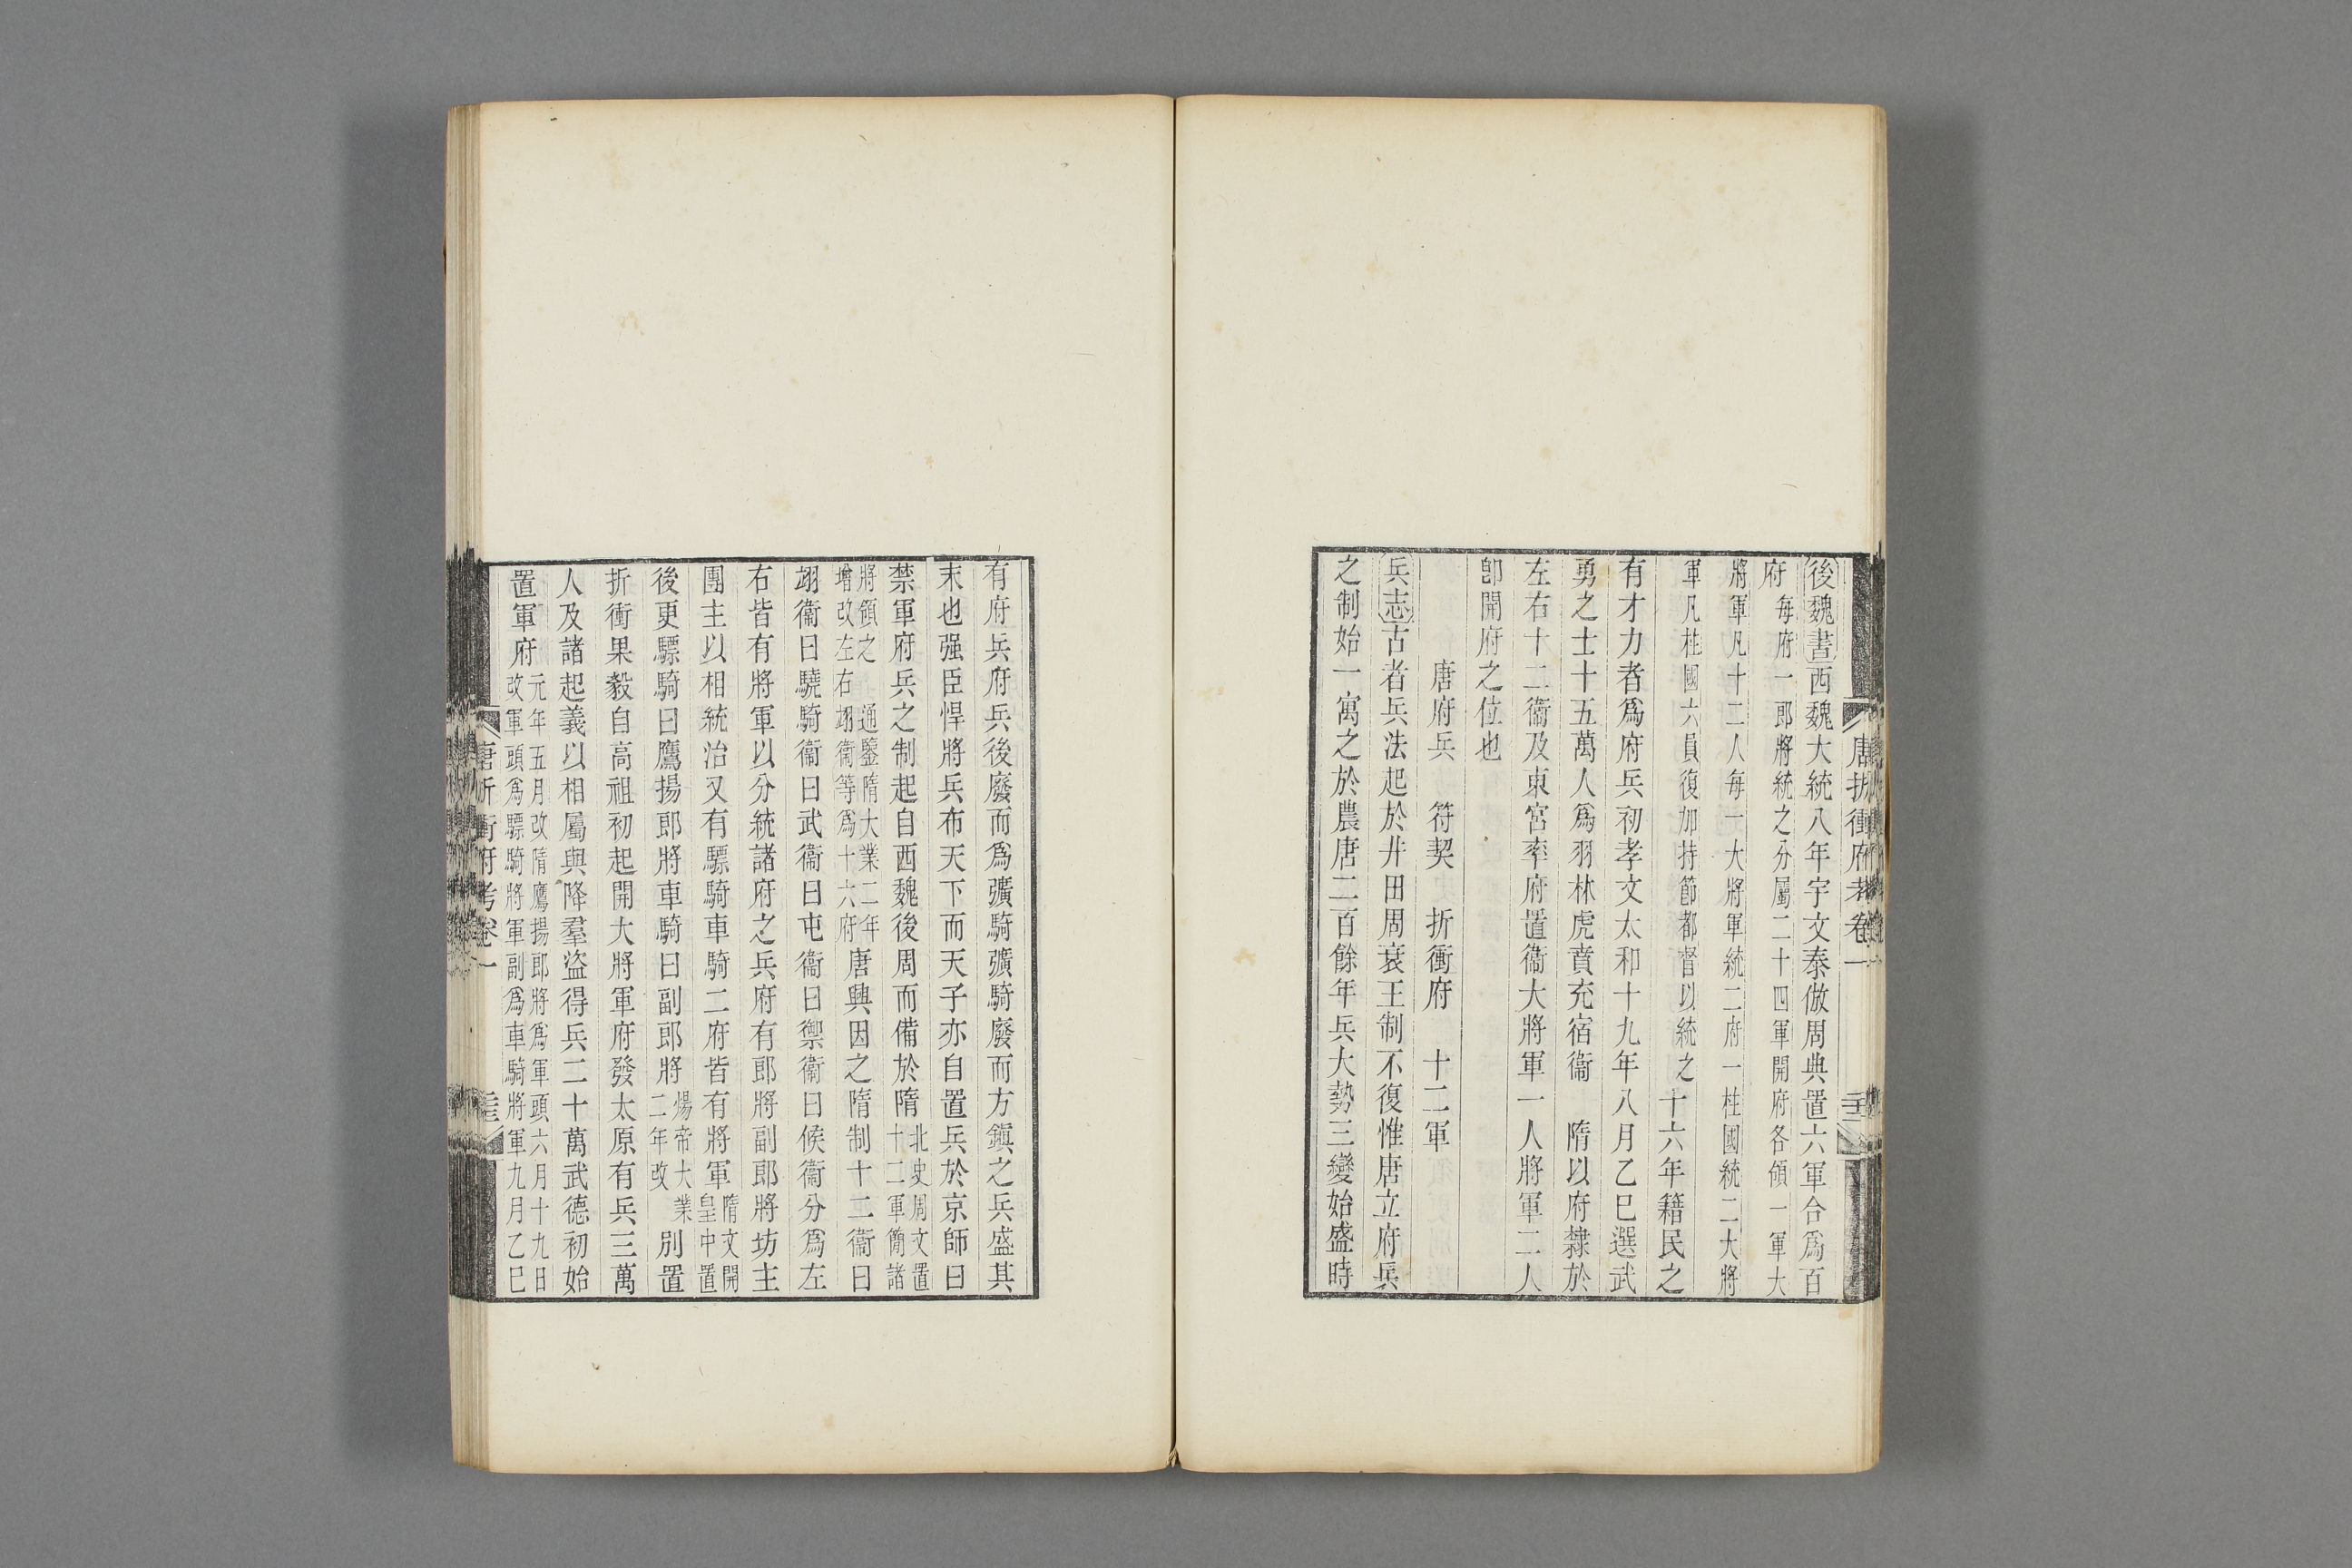 唐折衝府考卷一
後魏書西魏大統八年宇文泰倣周典置六軍合爲百
府每府一郎將統之分屬二十四軍開府各領一軍大
將軍凡十二人每一大將軍統二府一柱國統二大將
軍凡柱國六員復加持節都督以統之十六年籍民之
有才力者爲府兵初孝文太和十九年八月乙巳選武
勇之士十五萬人爲羽林虎賁充宿衞 隋以府隸於
左右十二衞及東宮率府置衞大將軍一人將軍二人
卽開府之位也
唐府兵 符契 折衝府 十二軍
兵志古者兵法起於井田周衰王制不復惟唐立府兵
之制始一寓之於農唐二百餘年兵大勢三變始盛時
有府兵府兵後廢而爲彍騎彍騎廢而方鎮之兵盛其
末也强臣悍將兵布天下而天子亦自置兵於京師曰
禁軍府兵之制起自西魏後周而備於隋北史周文置
十二軍簡諸
將領之 通鑒隋大業二年
增改左右翊衞等爲十六府唐興因之隋制十二衞曰
翊衞曰驍騎衞曰武衞曰屯衞曰禦衞曰候衞分爲左
右皆有將軍以分統諸府之兵府有郎將副郎將坊主
團主以相統治又有驃騎車騎二府皆有將軍隋文開
皇中置
後更驃騎曰鷹揚郎將車騎曰副郎將煬帝大業
二年改別置
折衝果毅自高祖初起開大將軍府發太原有兵三萬
人及諸起義以相屬與降羣盜得兵二十萬武德初始
置軍府元年五月改隋鷹揚郎將爲軍頭六月十九日
改軍頭爲驃騎將軍副爲車騎將軍九月乙巳
唐折衝府考卷一